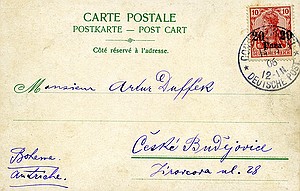 CARTE POSTALE
POSTKARTE — POST CART
Côté réservé à l'adresse.
10 10
20 20
Para
06
12-1N
* DEUTSCHE POST *
Monsieur Artur Duffek
České Budějovice
Jirovcova ul. 28
Bohema
Autriche.